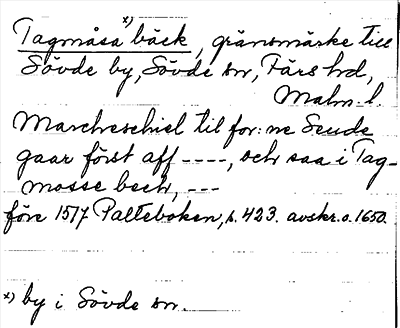 Tagmåsa x) bäck, gränsmärke till
Sövde by, Sövde sn, Färs hd,
Malm. l.
Marcheschiel til for:ne Seude
gaar först aff ----, och saa i Tag-
mosse bech, ---
före 1517 Palteboken, s. 423. avskr. o. 1650.
x) by i Sövde sn.